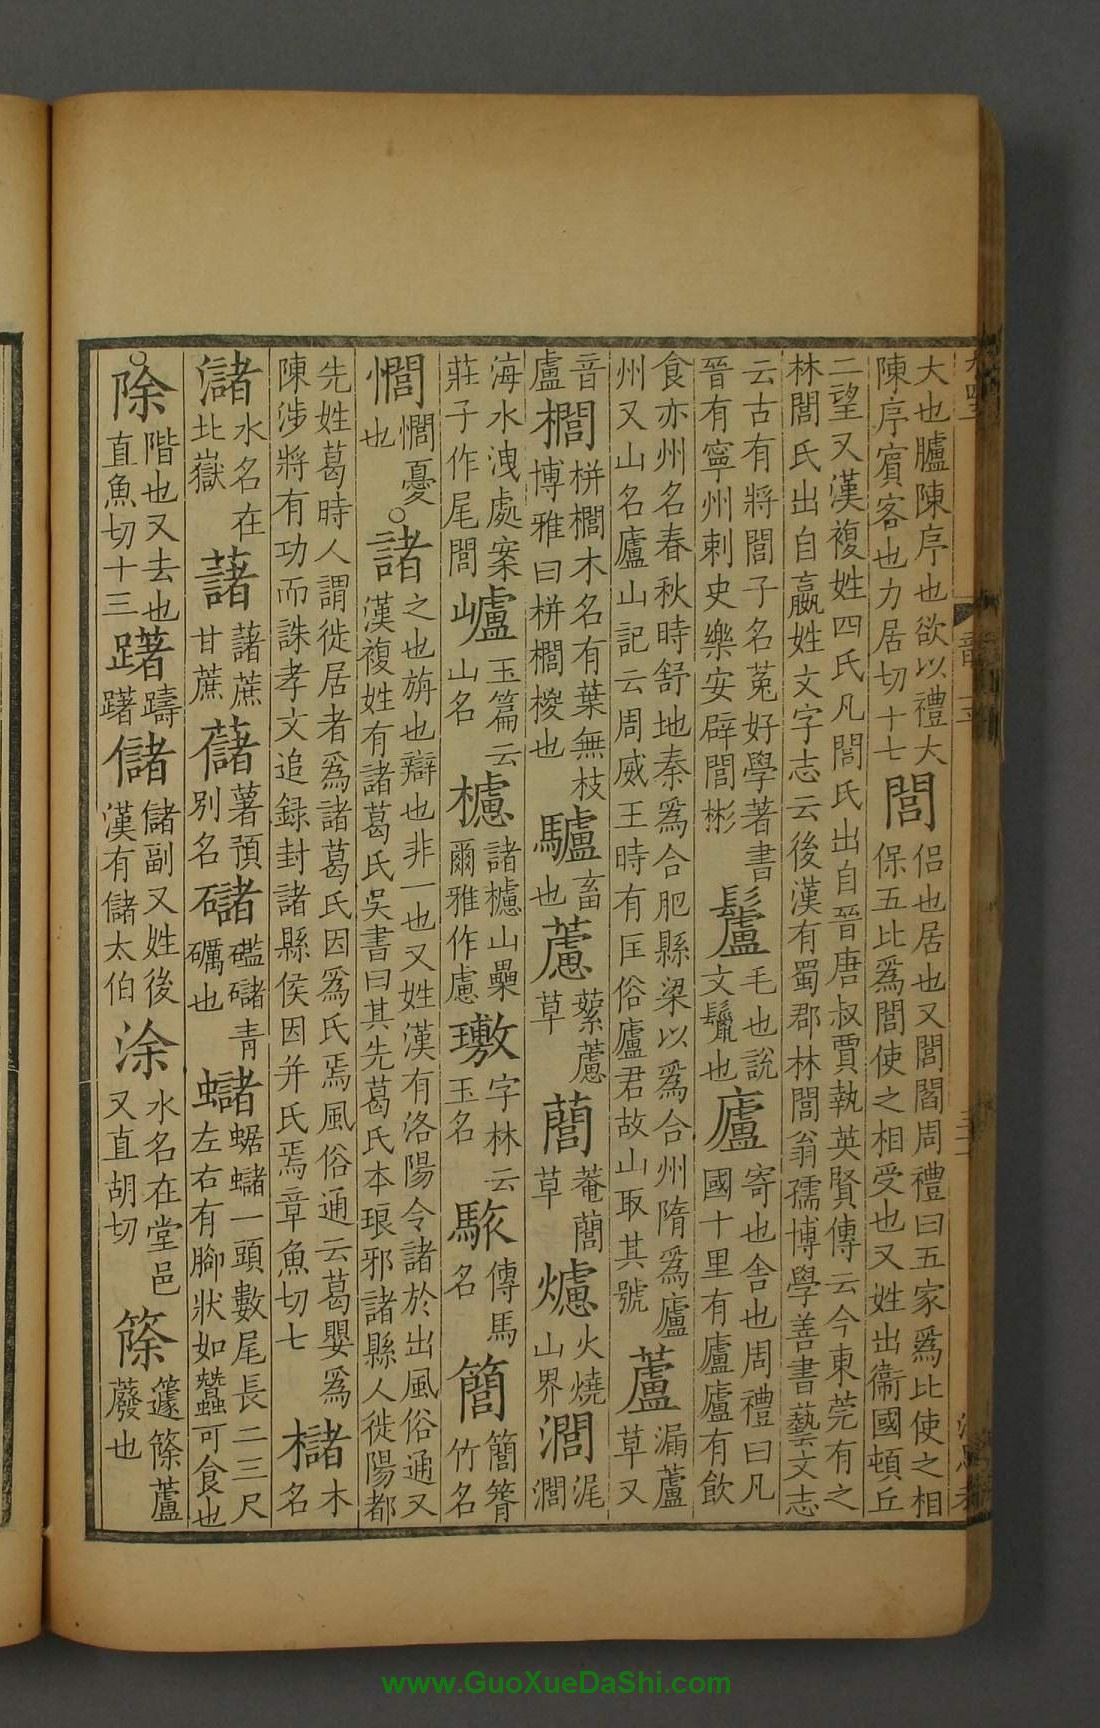 大也臚陳序也欲以禮大陳序賓客也力居切十七閭侶也居也又閭閻周禮曰五家爲比使之相保五比爲閭使之相受也又姓出衞國頓丘
二望又漢複姓四氏凡閭氏出自晉唐叔賈執英賢傳云今東莞有之林閭氏出自嬴姓文字志云後漢有蜀郡林閭翁孺博學善書藝文志
云古有將閭子名莵好學著書晉有寧州刺史樂安辟閭彬鬛毛也說文鬛也廬寄也舍也周禮曰凡國十里有廬廬有飲
食亦州名春秋時舒地秦爲合肥縣梁以爲合州隋爲廬州又山名廬山記云周威王時有匡俗廬君故山取其號蘆漏蘆草又
音盧櫚栟櫚木名有葉無枝博雅曰栟櫚椶也驢畜也藘䕲藘草藺菴藺草爈火燒山界澗浘澗
海水洩處案莊子作尾閭𡾊玉篇云山名櫖諸櫖山櫐爾雅作慮璷字林云玉名駇傳馬名簡簡筲竹名
憪憪憂也○諸之也旃也辯也非一也又姓漢有洛陽令諸於出風俗通又漢複姓有諸葛氏吳書曰其先葛氏本琅邪諸縣人徙陽都
先姓葛時人謂徙居者爲諸葛氏因爲氏焉風俗通云葛嬰爲陳涉將有功而誅孝文追録封諸縣侯因并氏焉章魚切七櫧木名
瀦水名在北嶽藷藷蔗甘蔗蕏薯預別名礛礛䃴青礪也蠩蝫蠩一頭數尾長二三尺左右有腳狀如蠶可食也
○除階也又去也直魚切十三躇躊躇儲儲副又姓後漢有儲太伯涂水名在堂邑又直胡切篨籧篨蘆蕟也
www.GuoXueDaShi.com